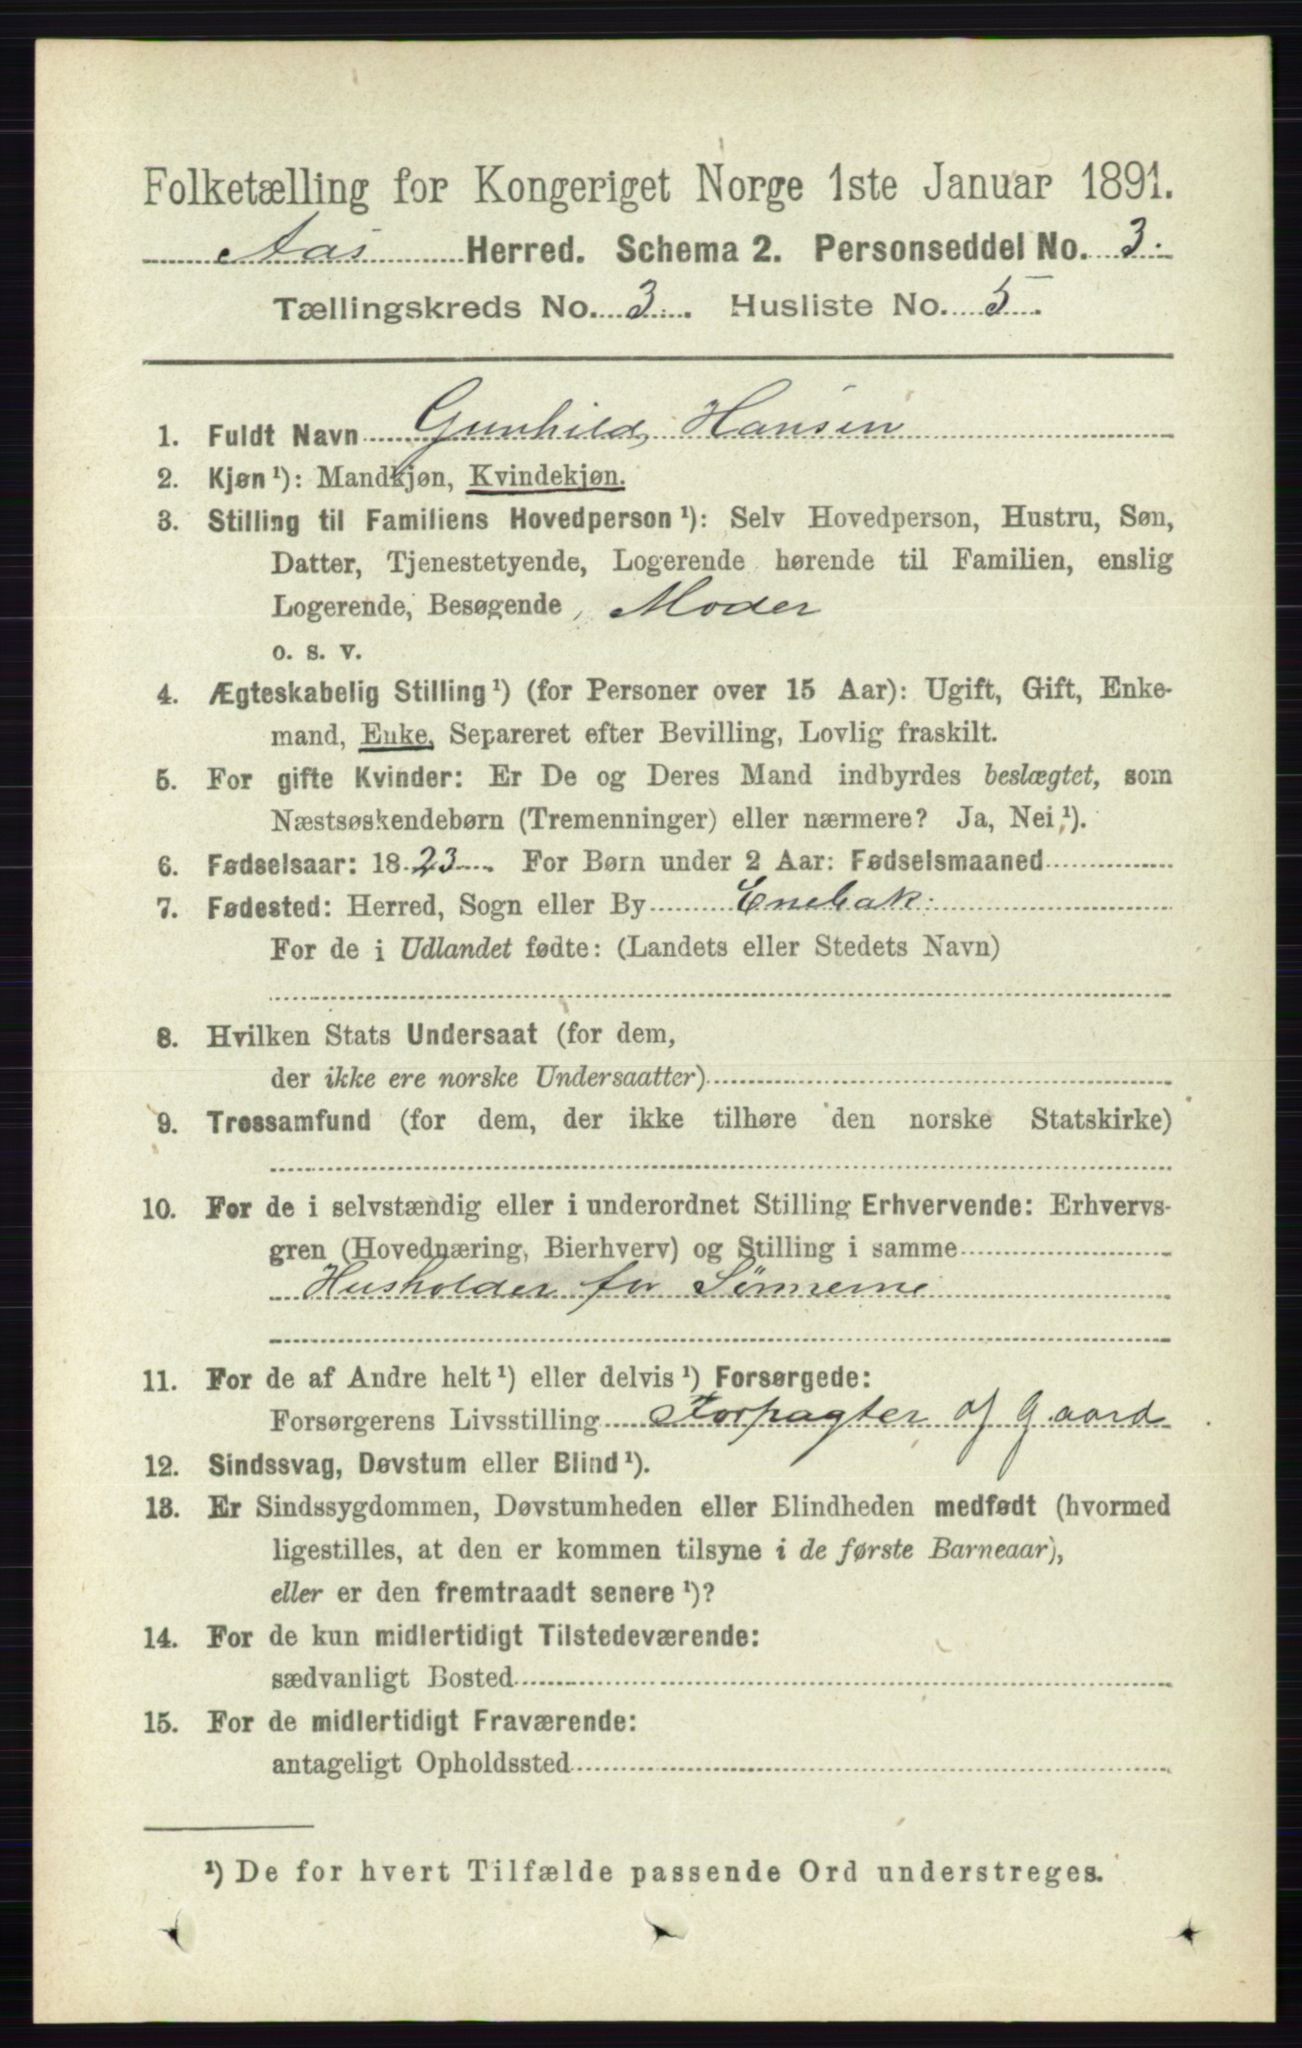 Folketælling for Kongeriget Norge 1ste Januar 1891.
Aas Herred. Schema 2. Personseddel No. 3.
Tællingskreds No. 3. Husliste No. 5.
1. Fuldt Navn Gunhild Hansen
2. Kjøn ¹): Mandkjøn, Kvindekjøn.
3. Stilling til Familiens Hovedperson ¹): Selv Hovedperson, Hustru, Søn,
Datter, Tjenestetyende, Logerende hørende til Familien, enslig
Logerende, Besøgende, Moder
o. s. v.
4. Ægteskabelig Stilling ¹) (for Personer over 15 Aar): Ugift, Gift, Enke-
mand, Enke, Separeret efter Bevilling, Lovlig fraskilt.
5. For gifte Kvinder: Er De og Deres Mand indbyrdes beslægtet, som
Næstsøskendebørn (Tremenninger) eller nærmere? Ja, Nei ¹).
6. Fødselsaar: 1823. For Børn under 2 Aar: Fødselsmaaned
7. Fødested: Herred, Sogn eller By Enebak.
For de i Udlandet fødte: (Landets eller Stedets Navn)
8. Hvilken Stats Undersaat (for dem,
der ikke ere norske Undersaatter)
9. Trossamfund (for dem, der ikke tilhøre den norske Statskirke)
10. For de i selvstændig eller i underordnet Stilling Erhvervende: Erhvervs-
gren (Hovednæring, Bierhverv) og Stilling i samme
Husholder for Sønnerne
11. For de af Andre helt ¹) eller delvis ¹) Forsørgede:
Forsørgerens Livsstilling Forpagter af Gaard
12. Sindssvag, Døvstum eller Blind ¹).
13. Er Sindssygdommen, Døvstumheden eller Blindheden medfødt (hvormed
ligestilles, at den er kommen tilsyne i de første Barneaar),
eller er den fremtraadt senere ¹)?
14. For de kun midlertidigt Tilstedeværende:
sædvanligt Bosted
15. For de midlertidigt Fraværende:
antageligt Opholdssted
¹) De for hvert Tilfælde passende Ord understreges.